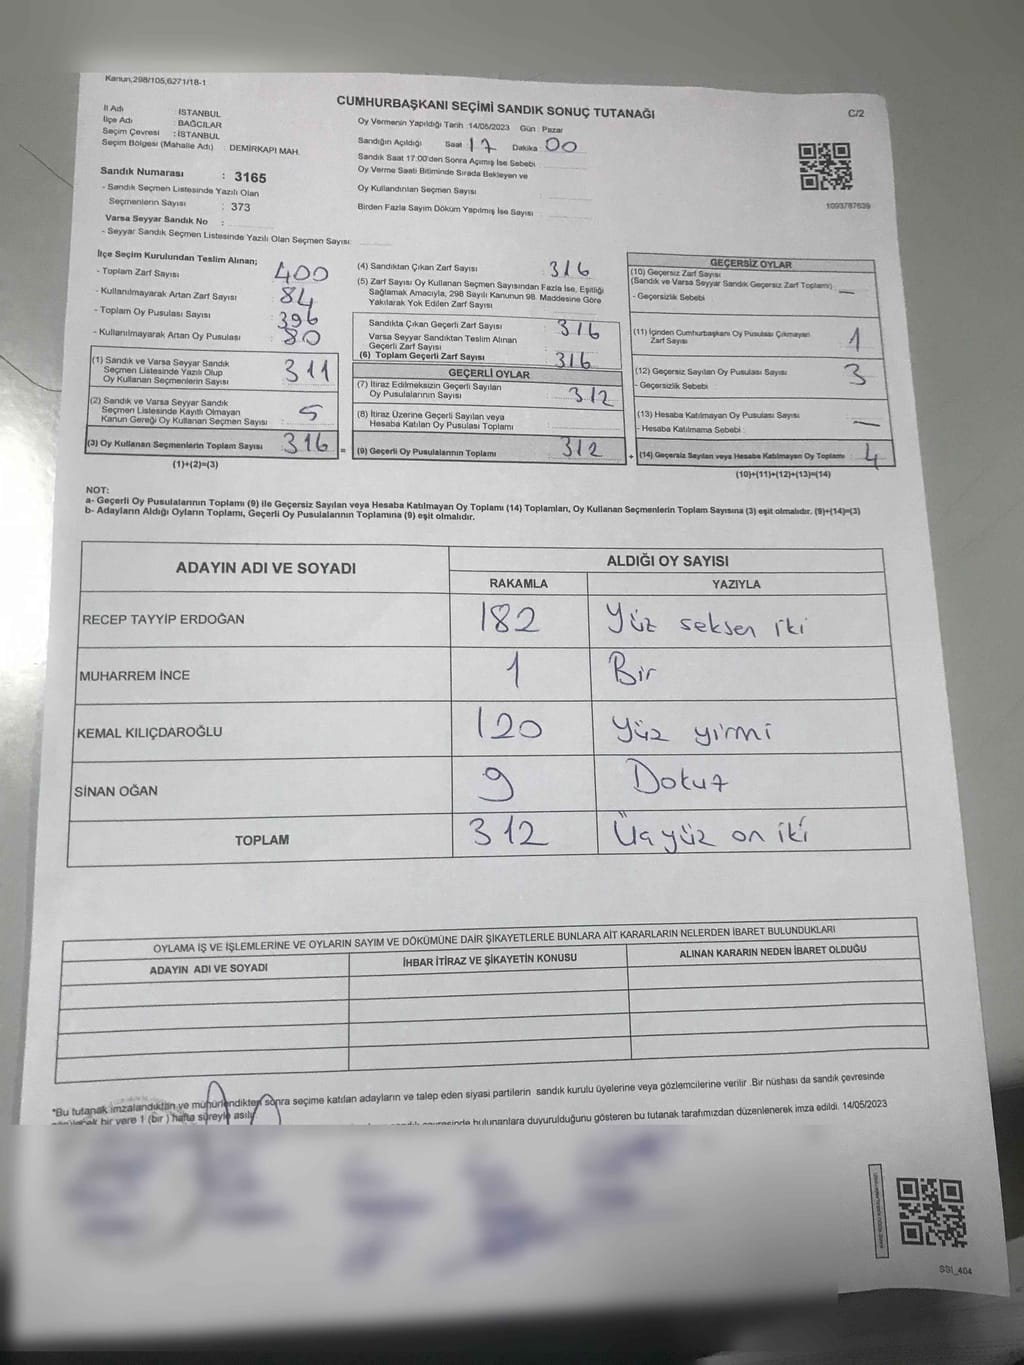 Kanun,298/105,6271/18-1
CUMHURBAŞKANI SEÇİMİ SANDIK SONUÇ TUTANAĞI
C/2
İl Adı : İSTANBUL
İlçe Adı : BAĞCILAR
Seçim Çevresi : İSTANBUL
Seçim Bölgesi (Mahalle Adı) : DEMİRKAPI MAH.
Sandık Numarası : 3165
- Sandık Seçmen Listesinde Yazılı Olan
Seçmenlerin Sayısı : 373
Varsa Seyyar Sandık No :
- Seyyar Sandık Seçmen Listesinde Yazılı Olan Seçmen Sayısı:
Oy Vermenin Yapıldığı Tarih :14/05/2023 Gün : Pazar
Sandığın Açıldığı Saat : 17 Dakika : 00
Sandık Saat 17:00'den Sonra Açımış İse Sebebi :
Oy Verme Saati Bitiminde Sırada Bekleyen ve
Oy Kullandırılan Seçmen Sayısı :
Birden Fazla Sayım Döküm Yapılmış İse Sayısı :
1093787639
İlçe Seçim Kurulundan Teslim Alınan;
- Toplam Zarf Sayısı : 400
- Kullanılmayarak Artan Zarf Sayısı : 84
- Toplam Oy Pusulası Sayısı : 396
- Kullanılmayarak Artan Oy Pusulası : 80
(1) Sandık ve Varsa Seyyar Sandık
Seçmen Listesinde Yazılı Olup
Oy Kullanan Seçmenlerin Sayısı : 311
(2) Sandık ve Varsa Seyyar Sandık
Seçmen Listesinde Kayıtlı Olmayan
Kanun Gereği Oy Kullanan Seçmen Sayısı : 5
(3) Oy Kullanan Seçmenlerin Toplam Sayısı : 316 =
(1)+(2)=(3)
(4) Sandıktan Çıkan Zarf Sayısı : 316
(5) Zarf Sayısı Oy Kullanan Seçmen Sayısından Fazla İse, Eşitliği
Sağlamak Amacıyla, 298 Sayılı Kanunun 98. Maddesine Göre
Yakılarak Yok Edilen Zarf Sayısı :
Sandıkta Çıkan Geçerli Zarf Sayısı : 316
Varsa Seyyar Sandıktan Teslim Alınan
Geçerli Zarf Sayısı :
(6) Toplam Geçerli Zarf Sayısı : 316
GEÇERLİ OYLAR
(7) İtiraz Edilmeksizin Geçerli Sayılan
Oy Pusulasının Sayısı : 312
(8) İtiraz Üzerine Geçerli Sayılan veya
Hesaba Katılan Oy Pusulası Toplamı :
(9) Geçerli Oy Pusulalarının Toplamı : 312 +
GEÇERSİZ OYLAR
(10) Geçersiz Zarf Sayısı
(Sandık ve Varsa Seyyar Sandık Geçersiz Zarf Toplamı) : —
- Geçersizlik Sebebi :
(11) İçinden Cumhurbaşkanı Oy Pusulası Çıkmayan
Zarf Sayısı : 1
(12) Geçersiz Sayılan Oy Pusulası Sayısı : 3
- Geçersizlik Sebebi :
(13) Hesaba Katılmayan Oy Pusulası Sayısı : —
- Hesaba Katılmama Sebebi :
(14) Geçersiz Sayılan veya Hesaba Katılmayan Oy Toplamı : 4
(10)+(11)+(12)+(13)=(14)
NOT:
a- Geçerli Oy Pusulalarının Toplamı (9) ile Geçersiz Sayılan veya Hesaba Katılmayan Oy Toplamı (14) Toplamları, Oy Kullanan Seçmenlerin Toplam Sayısına (3) eşit olmalıdır. (9)+(14)=(3)
b- Adayların Aldığı Oyların Toplamı, Geçerli Oy Pusulalarının Toplamına (9) eşit olmalıdır.
ADAYIN ADI VE SOYADI
ALDIĞI OY SAYISI
RAKAMLA YAZIYLA
RECEP TAYYİP ERDOĞAN 182 Yüz seksen iki
MUHARREM İNCE 1 Bir
KEMAL KILIÇDAROĞLU 120 Yüz yirmi
SİNAN OĞAN 9 Dokuz
TOPLAM 312 Üçyüz on iki
OYLAMA İŞ VE İŞLEMLERİNE VE OYLARIN SAYIM VE DÖKÜMÜNE DAİR ŞİKAYETLERLE BUNLARA AİT KARARLARIN NELERDEN İBARET BULUNDUKLARI
ADAYIN ADI VE SOYADI İHBAR İTİRAZ VE ŞİKAYETİN KONUSU ALINAN KARARIN NEDEN İBARET OLDUĞU
*Bu tutanak imzalandıktan ve mühürlendikten sonra seçime katılan adayların ve talep eden siyasi partilerin sandık kurulu üyelerine veya gözlemcilerine verilir .Bir nüshası da sandık çevresinde
bir yere 1 (bir ) hafta süreyle asılır.
bulunanlara duyurulduğunu gösteren bu tutanak tarafımızdan düzenlenerek imza edildi. 14/05/2023
SSI_404